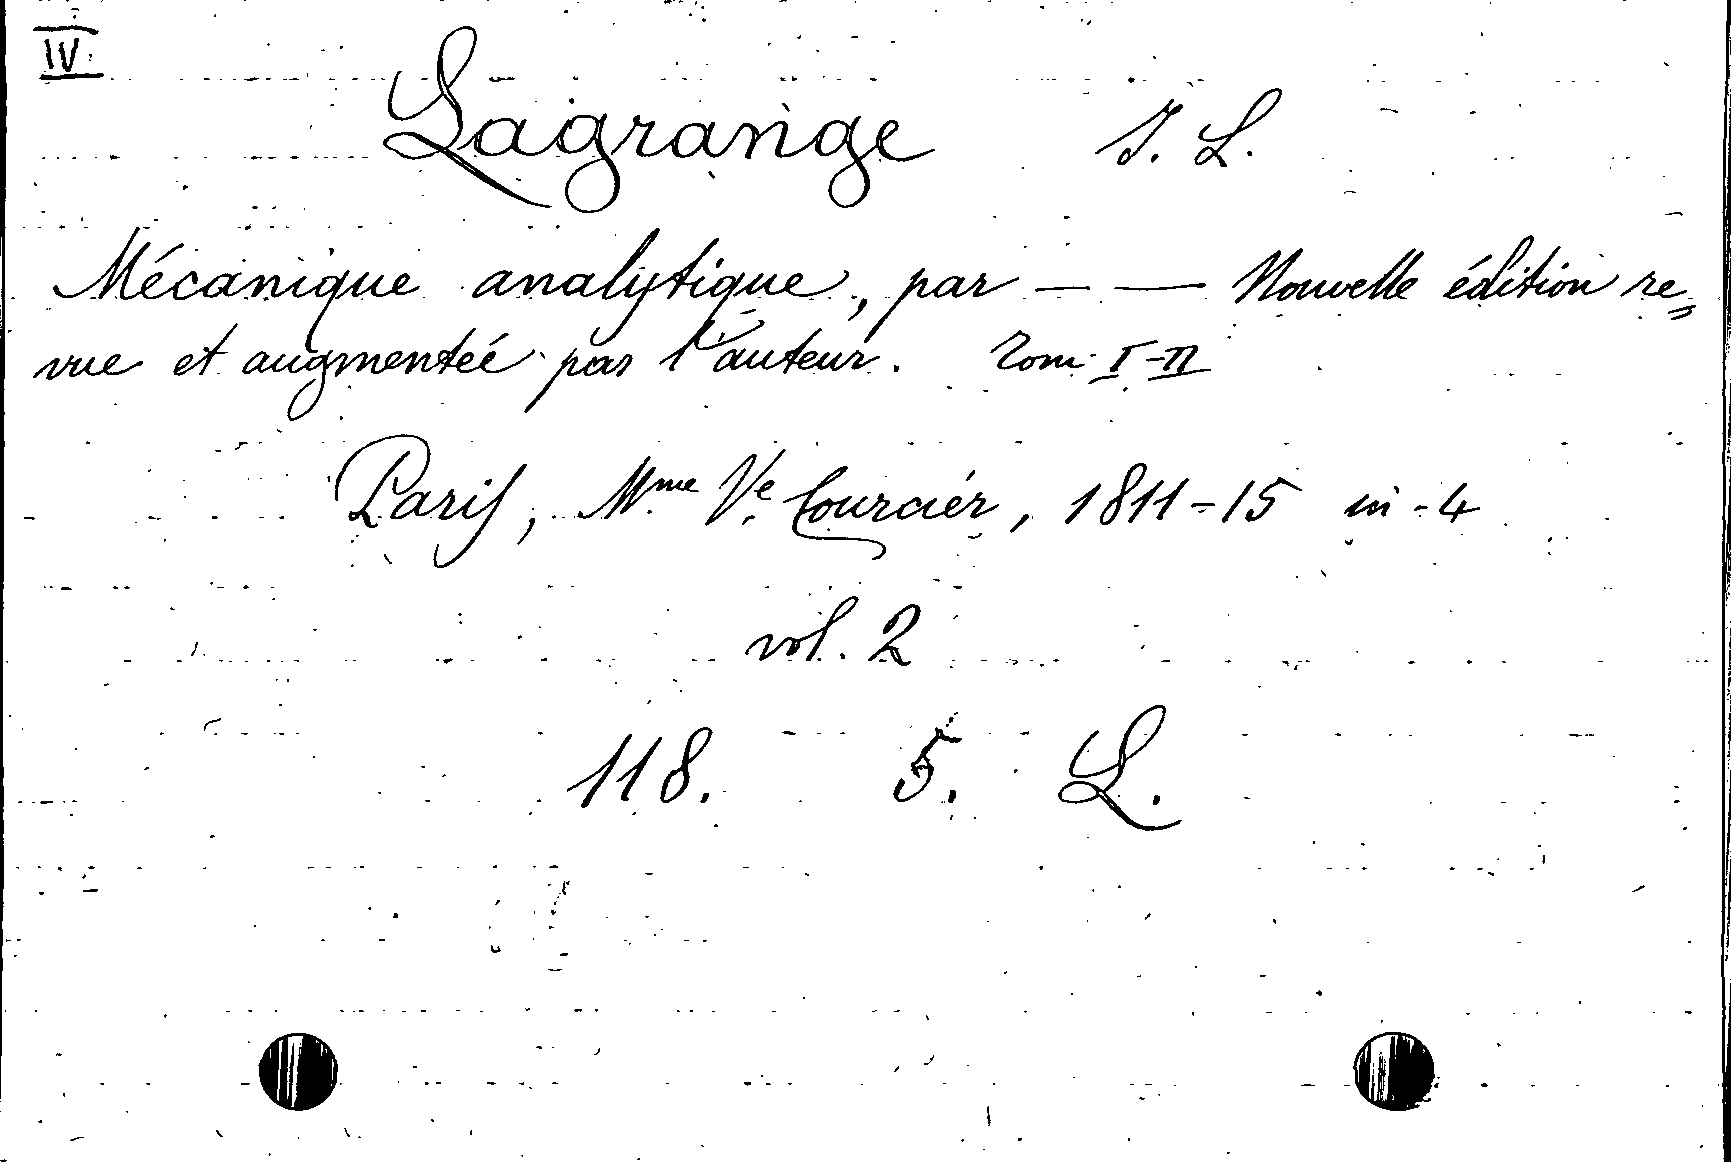 IV
Lagrange J. L.
Mécanique analytique, par — — Nouvelle édition re=
vue et augmenteé par l'auteur. Tom I-II
Paris, Mme Ve Courcier, 1811-15 in-4
vol. 2
118. 5. L.